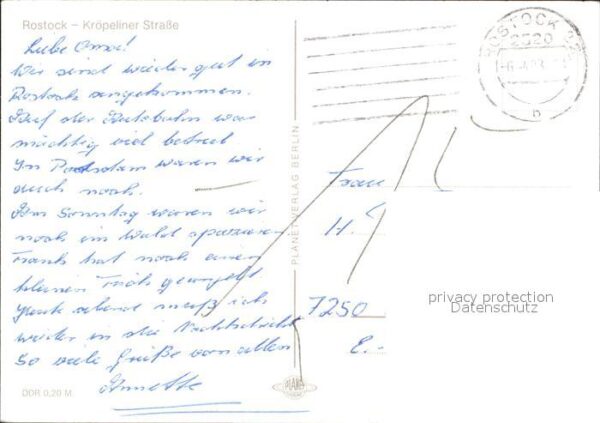 Rostock – Kröpeliner Straße
Liebe Oma!
Wir sind wieder gut in
Rostock angekommen.
Auf der Autobahn war
mächtig viel betrieb
In Potsdam waren wir
auch noch.
Am Sonntag waren wir
noch im Wald spazieren
Frank hat noch einen
kleinen
heute abend muß ich
wieder in die Nachtschicht
So viele Grüße von allen
Annette
DDR 0,20 M
PLANET-VERLAG BERLIN
PLANET
ROSTOCK
2520
b
Frau
H.
7250
E.
privacy protection
Datenschutz